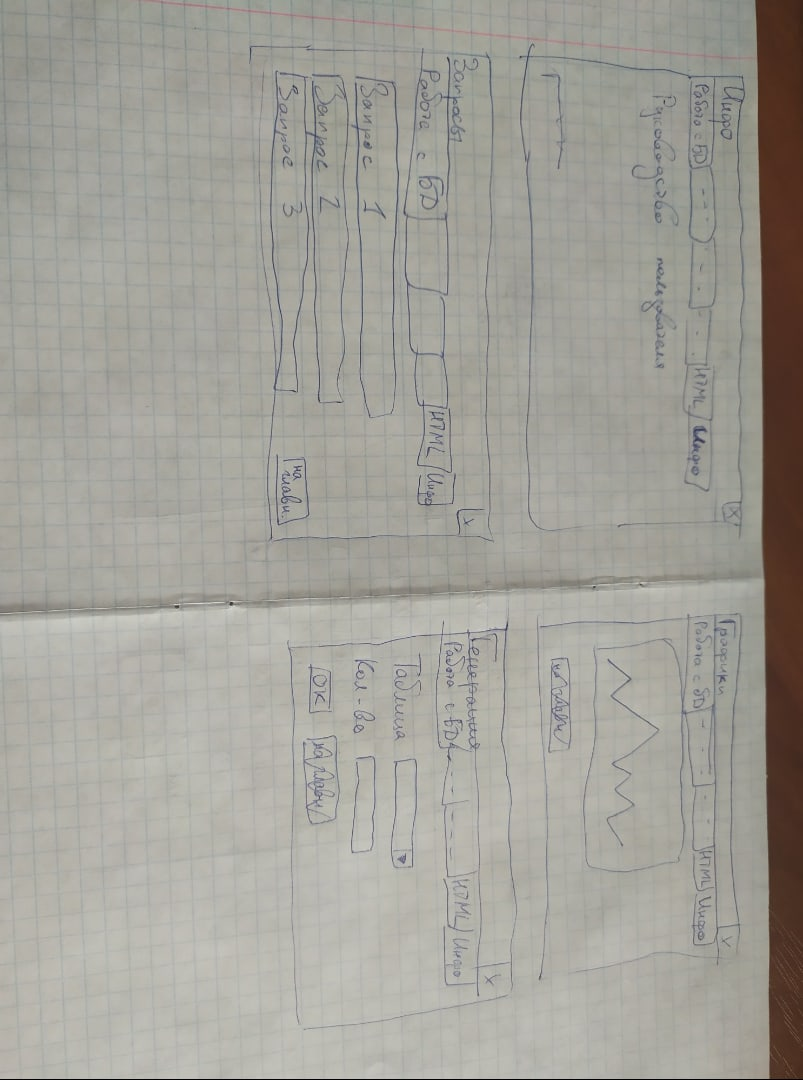 Инфо X
Работа с БД HTML Инфо
Руководство пользователя
Запросы X
Работа с БД HTML Инфо
Запрос 1
Запрос 2
Запрос 3
на главн.
Графики X
Работа с БД HTML Инфо
на главн
Генерация X
Работа с БД HTML Инфо
Таблица
Кол-во
ОК на главн